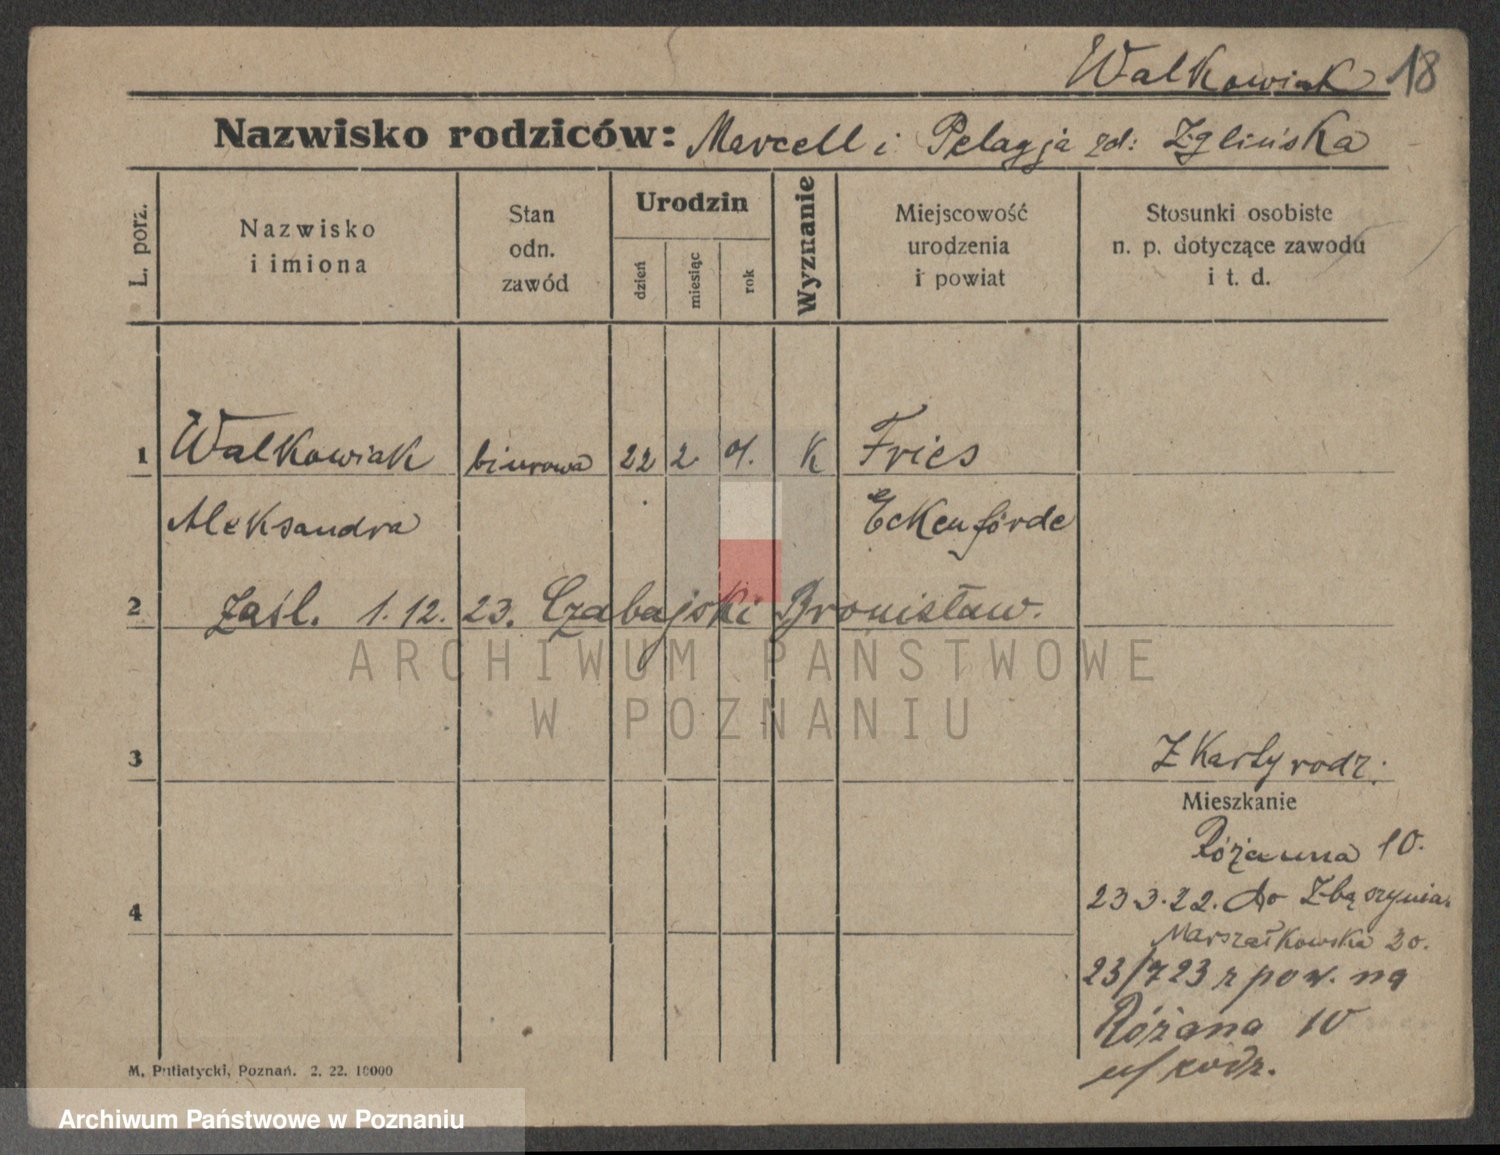 Walkowiak 18
Nazwisko rodziców: Marcell i Pelagja zd: Zglińska
L. porz.
Nazwisko
i imiona
Stan
odn.
zawód
Urodzin
dzień
miesiąc
rok
Wyznanie
Miejscowość
urodzenia
i powiat
Stosunki osobiste
n. p. dotyczące zawodu
i t. d.
1 Walkowiak biurowa 22 2. 01. K Fries
Aleksandra Eckenförde
2 Zaśl. 1. 12. 23. Czabajski Bronisław.
ARCHIWUM PAŃSTWOWE
W POZNANIU
3 Z Karty rodz.
Mieszkanie
Różanna 10.
4 23.3.22. do Zbąszynia.
Marszałkowska 20.
23/7 23 r pow. na
Różana 10
u/ rodz.
M. Putiatycki, Poznań. 2. 22. 10000
Archiwum Państwowe w Poznaniu